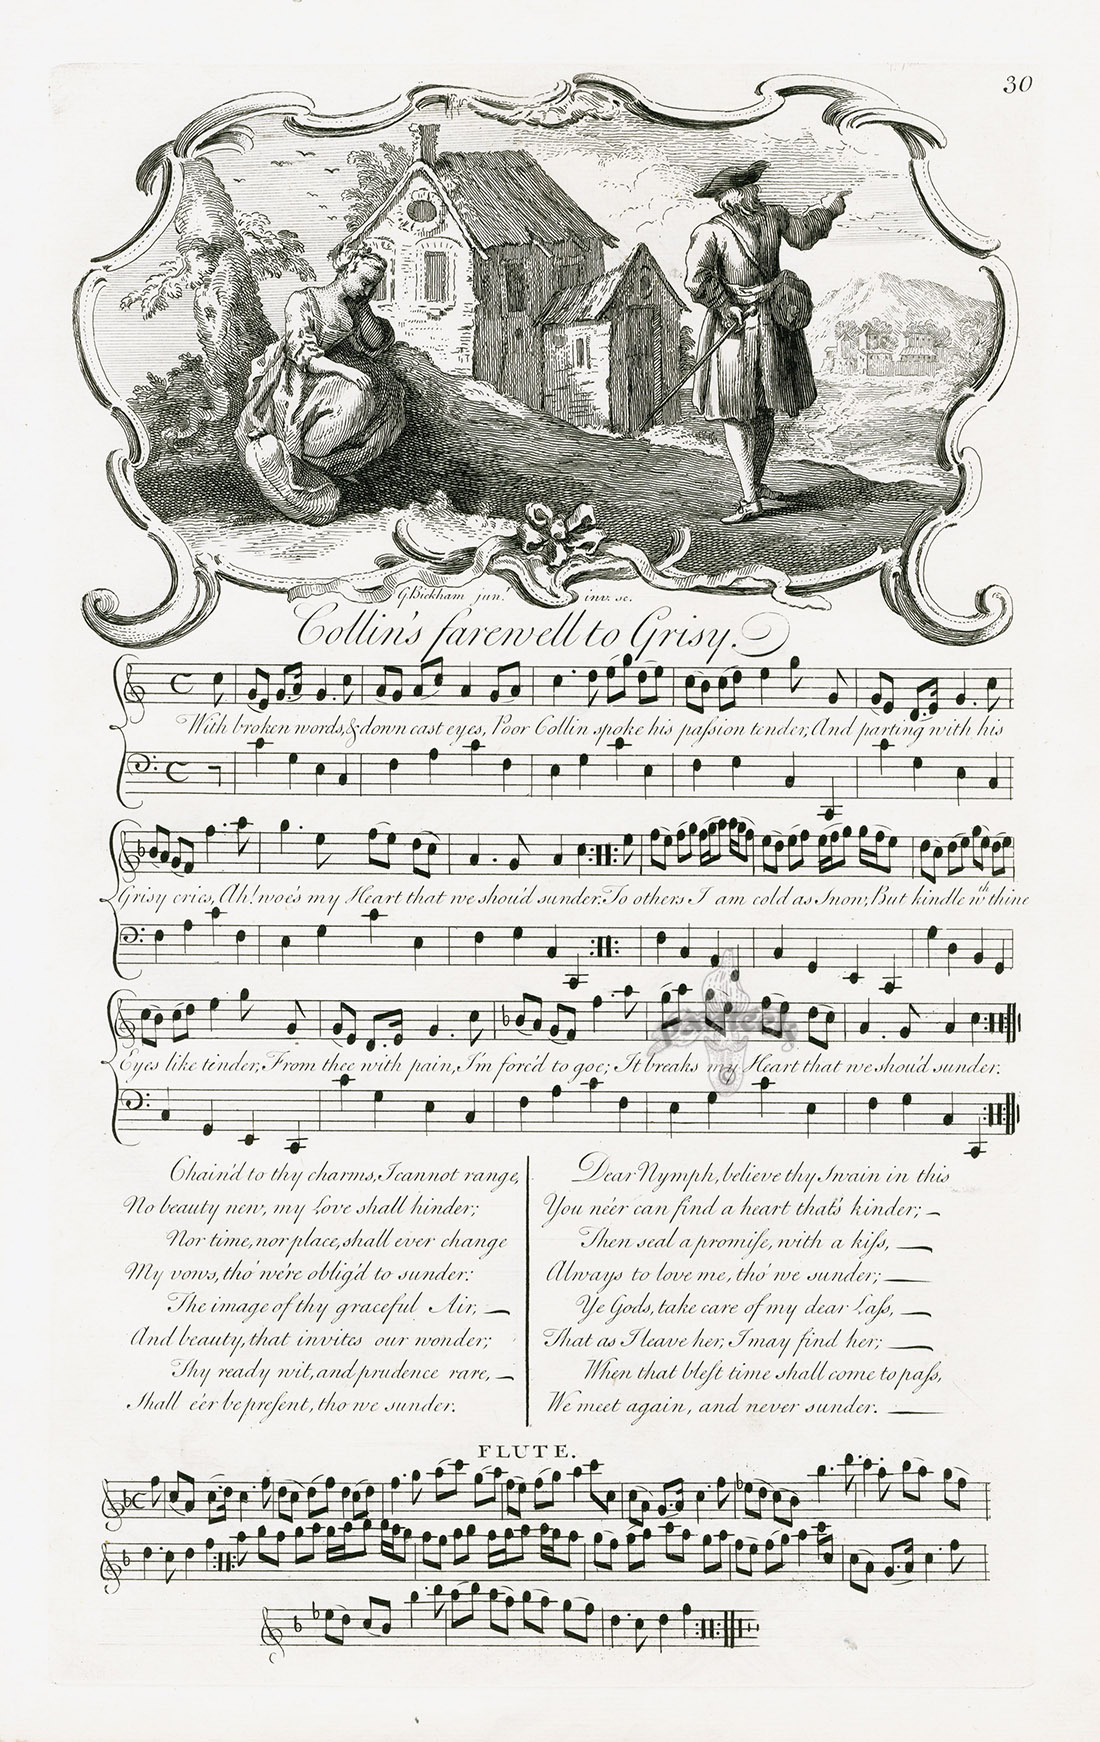 30
G Bickham jun.r inv. sc.
Collin's farewell to Grisy.
With broken words, & down cast eyes, Poor Collin spoke his paſsion tender; And parting with his
Grisy cries, Ah! woe's my Heart that we shou'd sunder. To others I am cold as Snow, But kindle wth thine
Eyes like tinder; From thee with pain, I'm forc'd to goe; It breaks my Heart that we shou'd sunder.
Chain'd to thy charms, I cannot range,
No beauty new, my Love shall hinder;
Nor time, nor place, shall ever change
My vows, tho' we're oblig'd to sunder:
The image of thy graceful Air,
And beauty, that invites our wonder;
Thy ready wit, and prudence rare,
Shall e'er be preſent, tho we sunder.
Dear Nymph, believe thy Swain in this
You ne'er can find a heart that's kinder;
Then seal a promiſe, with a kiſs,
Always to love me, tho' we sunder;
Ye Gods, take care of my dear Laſs,
That as I leave her, I may find her;
When that bleſt time shall come to paſs,
We meet again, and never sunder.
FLUTE.